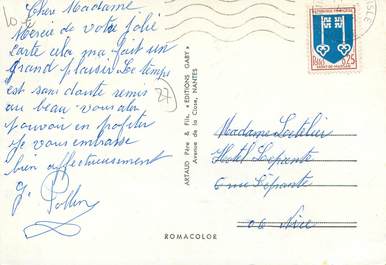 Chère Madame
Merci de votre jolie
carte cela m'a fait un
grand plaisir. Le temps
est sans doute remis
au beau vous aller
pouvoir en profiter
je vous embrasse
bien affectueusement
27
ARTAUD Père & Fils. "EDITIONS GABY"
Avenue de la Close, NANTES
REPUBLIQUE FRANCAISE
0,25
MONT-DE-MARSAN
Madame Letelier
Hotel Lepante
6 rue Lépante
06 Nice
ROMACOLOR